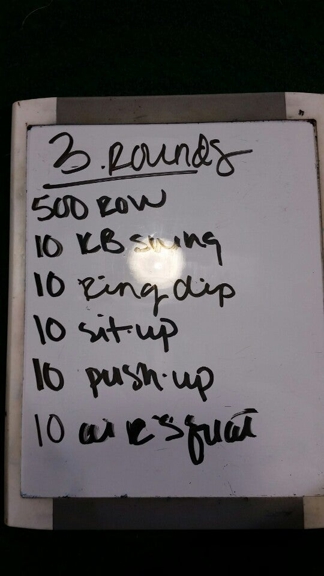 3 Rounds
500 ROW
10 KB swing
10 Ring dip
10 sit-up
10 push-up
10 air squat